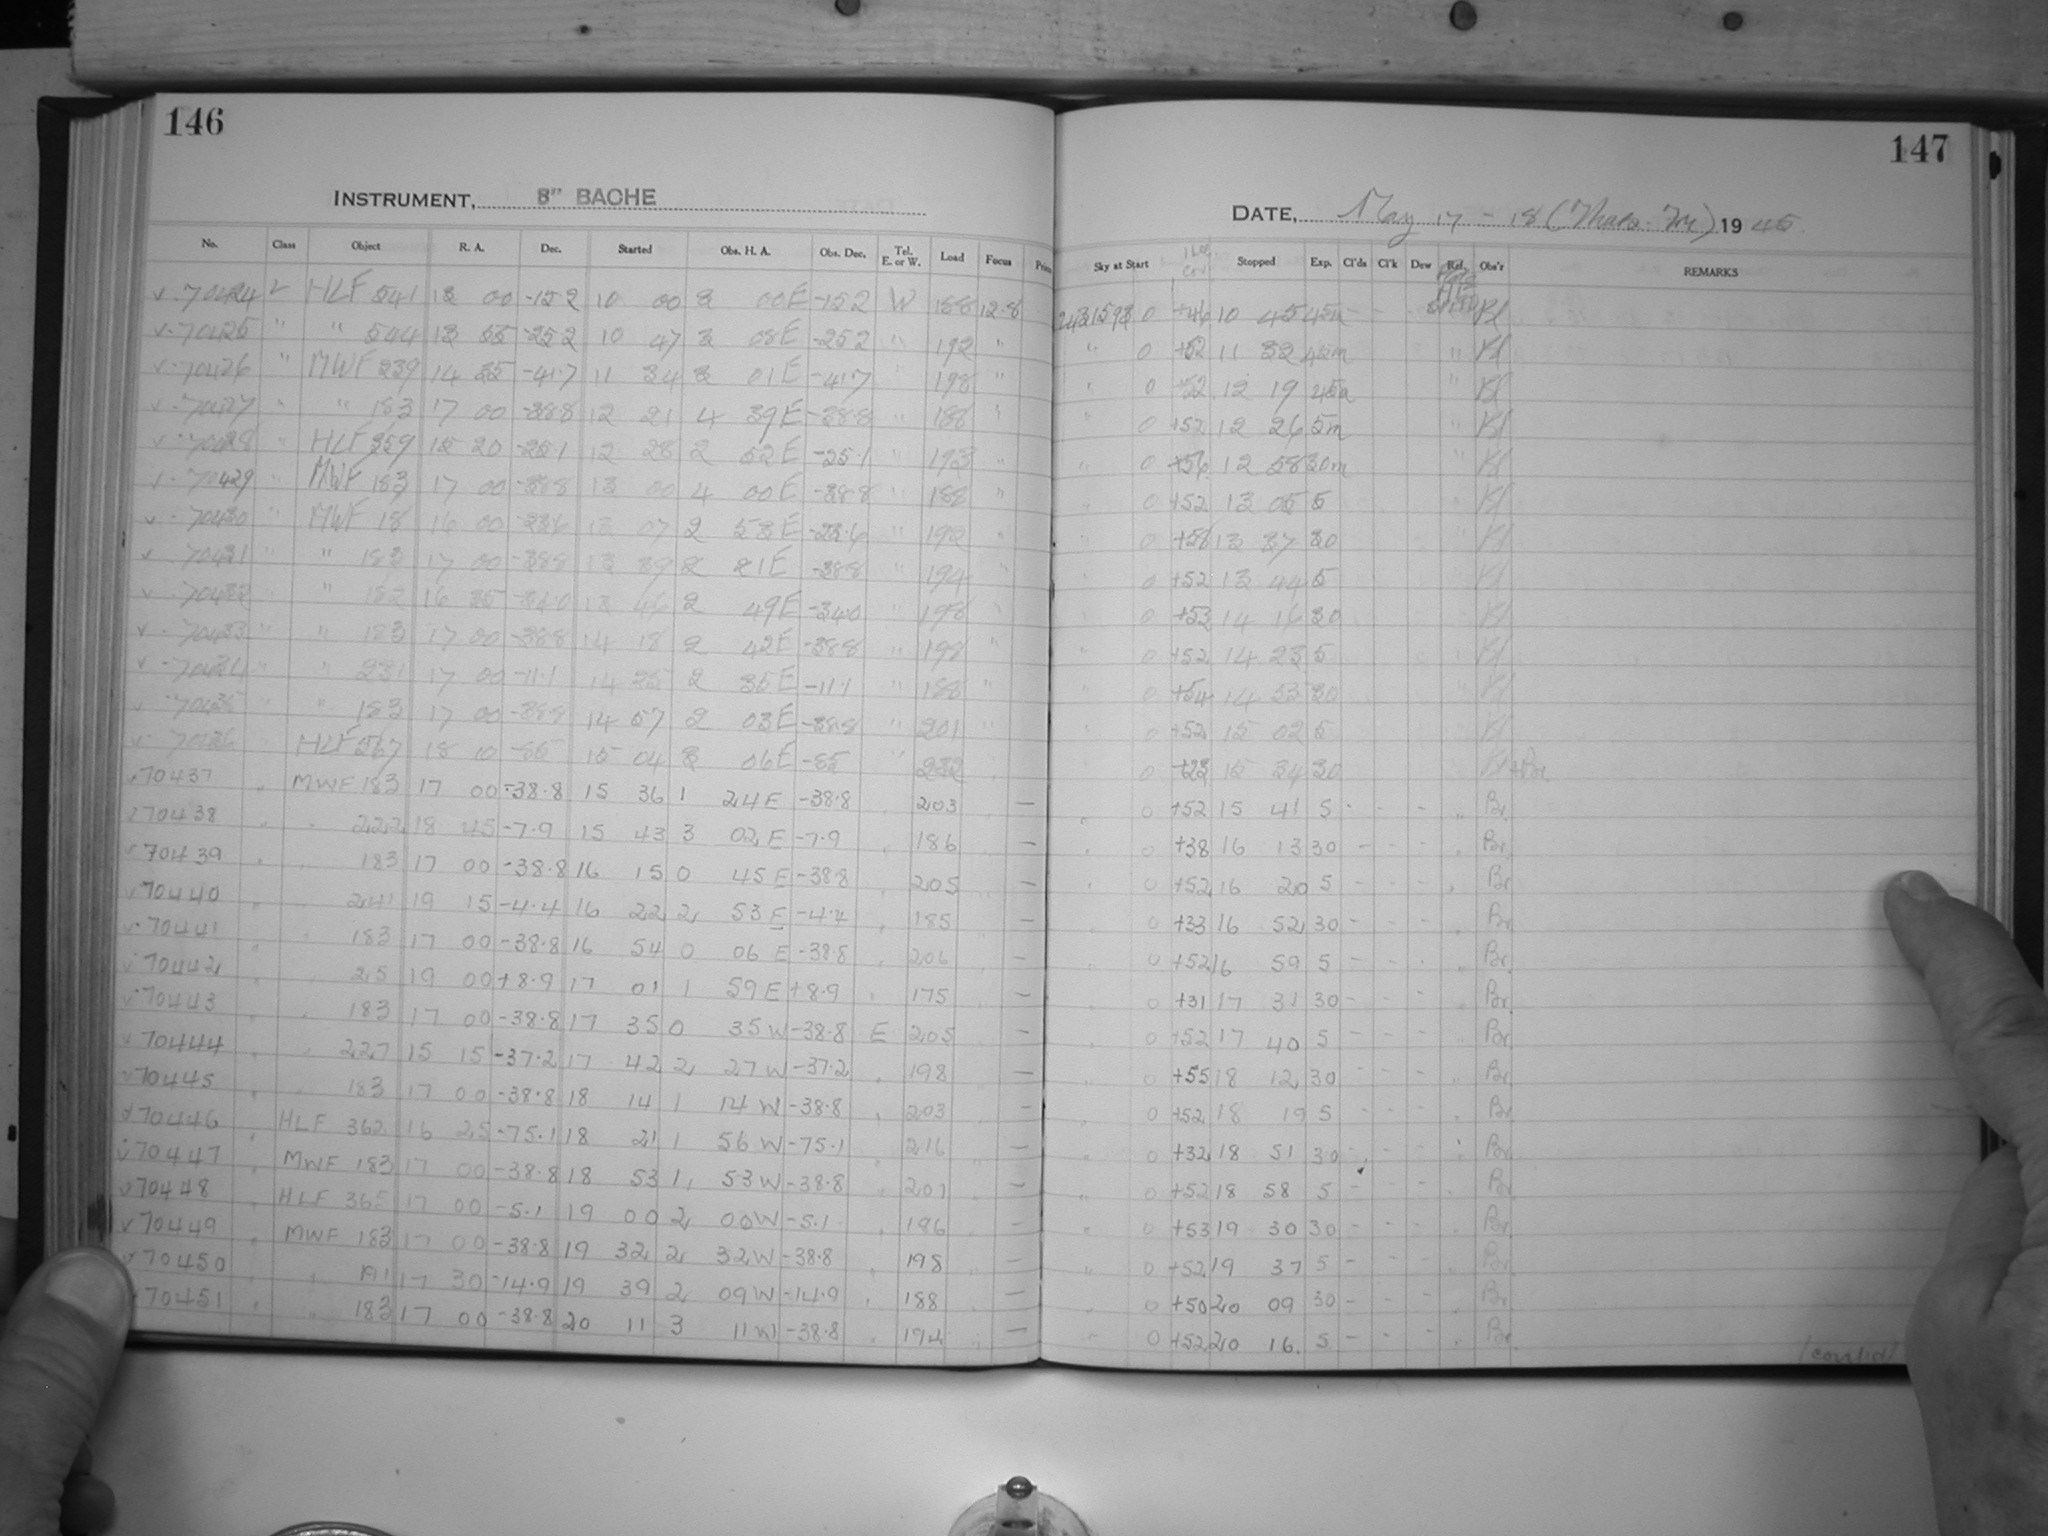 146
INSTRUMENT, 8" BACHE
No. Class Object R. A. Dec. Started Obs. H. A. Obs. Dec. Tel. E. or W. Load Focus
v 70424 L HLF 541 13 00 -15.2 10 00 3 00 E -15.2 W 188 12.8
v 70425 " " 544 13 55 -25.2 10 47 3 08 E -25.2 " 192 "
v 70426 " MWF 239 14 35 -41.7 11 34 3 01 E -41.7 " 198 "
v 70427 " " 183 17 00 -38.8 12 21 4 39 E -38.8 " 188 "
v 70428 " HLF 359 15 20 -25.1 12 28 2 52 E -25.1 " 193 "
v 70429 " MWF 183 17 00 -38.8 13 00 4 00 E -38.8 " 188 "
v 70430 " MWF 18 16 00 -23.6 13 07 2 53 E -23.6 " 192 "
v 70431 " " 183 17 00 -38.8 13 39 3 21 E -38.8 " 194 "
v 70432 " " 182 16 35 -34.0 13 46 2 49 E -34.0 " 198 "
v 70433 " " 183 17 00 -38.8 14 18 2 42 E -38.8 " 198 "
v 70434 " " 231 17 00 -11.1 14 25 2 35 E -11.1 " 188 "
70435 " " 183 17 00 -38.8 14 57 2 03 E -38.8 " 201 "
v 70436 HLF 567 18 10 -85 15 04 3 06 E -85 " 232
v 70437 " MWF 183 17 00 -38.8 15 36 1 24 E -38.8 " 203 —
v 70438 " " 222 18 45 -7.9 15 43 3 02 E -7.9 " 186 —
v 70439 " " 183 17 00 -38.8 16 15 0 45 E -38.8 " 205 —
v 70440 " " 241 19 15 -4.4 16 22 2 53 E -4.4 " 185 —
v 70441 " " 183 17 00 -38.8 16 54 0 06 E -38.8 " 206 —
v 70442 " " 25 19 00 +8.9 17 01 1 59 E +8.9 " 175 —
v 70443 " " 183 17 00 -38.8 17 35 0 35 W -38.8 E 205 —
v 70444 " " 227 15 15 -37.2 17 42 2 27 W -37.2 " 198 —
v 70445 " " 183 17 00 -38.8 18 14 1 14 W -38.8 " 203 —
v 70446 " HLF 362 16 25 -75.1 18 21 1 56 W -75.1 " 216 —
v 70447 " MWF 183 17 00 -38.8 18 53 1 53 W -38.8 " 201 —
v 70448 HLF 365 17 00 -5.1 19 00 2 00 W -5.1 " 186 —
v 70449 " MWF 183 17 00 -38.8 19 32 2 32 W -38.8 " 198 —
v 70450 " " 191 17 30 -14.9 19 39 2 09 W -14.9 " 188 —
70451 " " 183 17 00 -38.8 20 11 3 11 W -38.8 " 194 —
147
DATE, May 17 - 18 (Thurs - Fri) 1945
Sky at Start Stopped Exp. Cl'ds Cl'k Dew Ref. Obs'r REMARKS
2431593 0 +46 10 45 45m - - Bl
" 0 +52 11 32 45m " Bl
" 0 +52 12 19 45m " Bl
" 0 +52 12 26 5m " Bl
" 0 +56 12 58 30m " Bl
" 0 +52 13 05 5 Bl
" 0 +58 13 37 30 Bl
" 0 +52 13 44 5 Bl
" 0 +53 14 16 30 Bl
" 0 +52 14 23 5 Bl
" 0 +54 14 55 30 Bl
" 0 +52 15 02 5 Bl
0 +23 15 34 30 Bl + Br.
" 0 +52 15 41 5 - - - " Br.
" 0 +38 16 13 30 - - - " Br.
" 0 +52 16 20 5 - - - " Br
" 0 +33 16 52 30 - - - " Br
" 0 +52 16 59 5 - - - " Br.
" 0 +31 17 31 30 - - - " Br.
" 0 +52 17 40 5 - - - " Br.
" 0 +55 18 12 30 - - - " Br.
" 0 +52 18 19 5 - - - " Br
" 0 +32 18 51 30 - - - " Br.
" 0 +52 18 58 5 - - - " Br.
" 0 +53 19 30 30 - - - " Br.
" 0 +52 19 37 5 - - - " Br.
" 0 +50 20 09 30 - - - " Br.
" 0 +52 20 16 5 - - - " Br.
(cont'd)